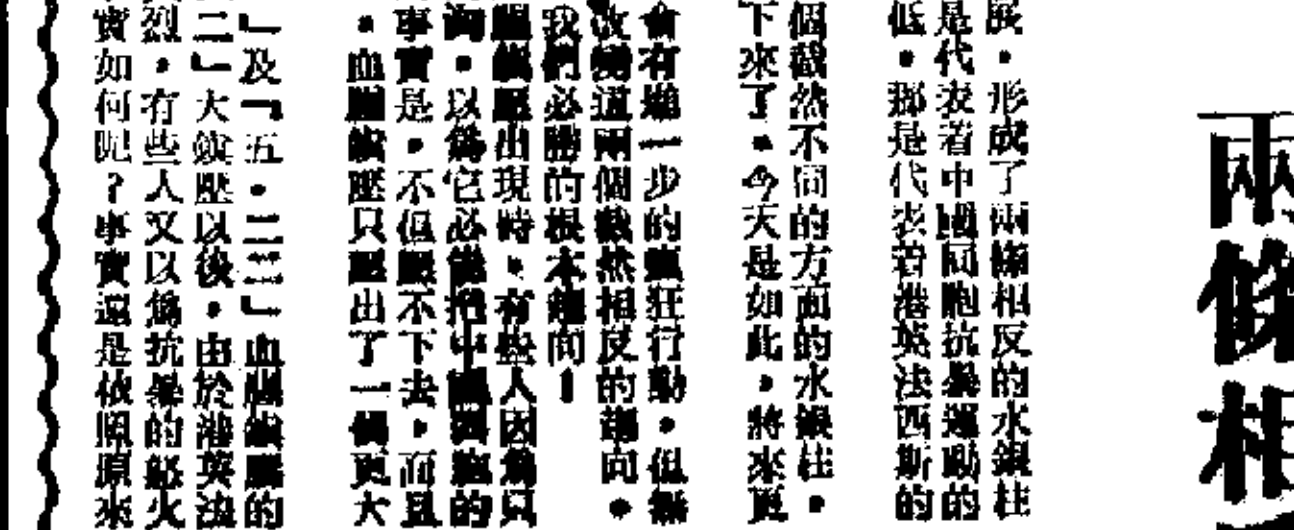 兩條相
展，形成了兩條相反的水銀柱
是代表着中國同胞抗暴運動的
低，那是代表着港英法西斯的
個截然不同的方面的水銀柱，
下來了。今天是如此，將來更
會有進一步的瘋狂行動，但無
改變這兩個截然相反的趨向。
我們必勝的根本趨向！
鎮壓出現時，有些人因爲只
，以爲它必能把中國同胞的
事實是，不但壓不下去，而且
，血腥鎮壓只壓出了一個更大
」及「五·二二」血腥鎮壓的
二」大鎮壓以後，由於港英法
烈，有些人又以爲抗暴的怒火
實如何呢？事實還是依照原來